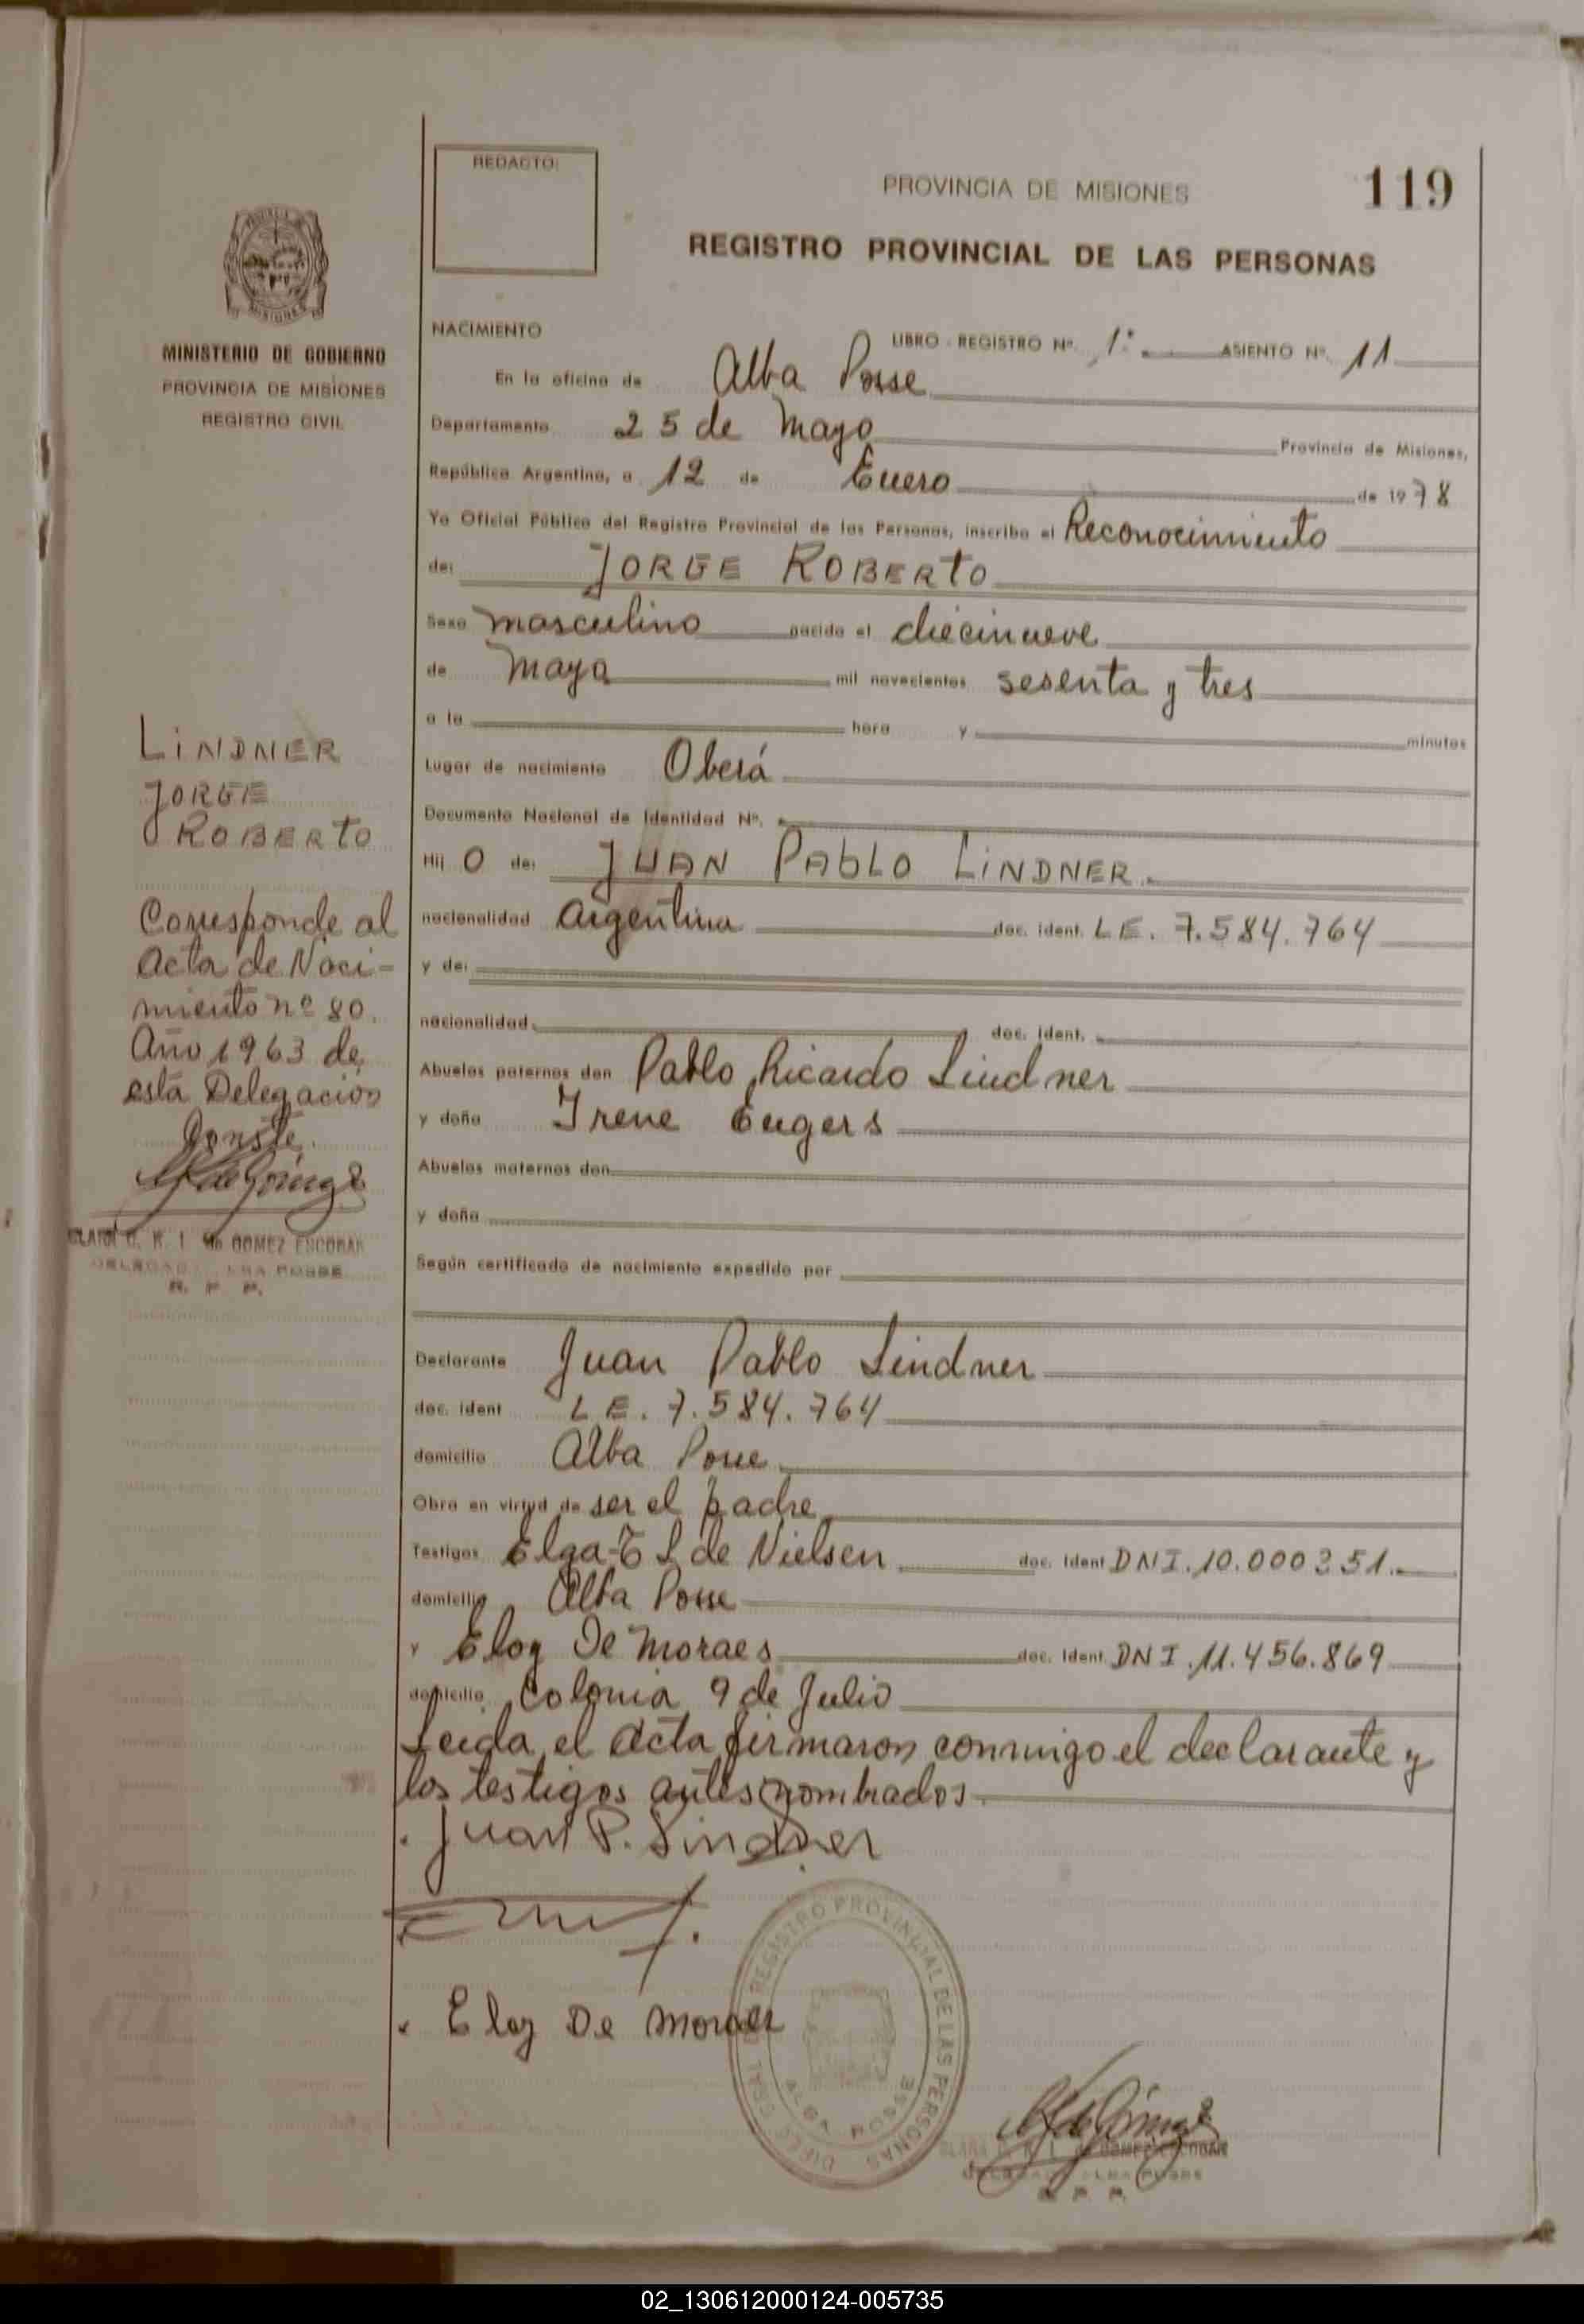 REDACTO:
PROVINCIA DE MISIONES
119
REGISTRO PROVINCIAL DE LAS PERSONAS
MINISTERIO DE GOBIERNO
PROVINCIA DE MISIONES
REGISTRO CIVIL
NACIMIENTO
LIBRO - REGISTRO Nº. 1º ASIENTO Nº. 11
En la oficina de Alba Posse
Departamento 25 de Mayo Provincia de Misiones,
República Argentina, a 12 de Enero de 1978
Yo Oficial Público del Registro Provincial de las Personas, inscribo el Reconocimiento
de: JORGE ROBERTO
Sexo masculino nacido el diecinueve
de Mayo mil novecientos sesenta y tres
a la hora y minutos
Lugar de nacimiento Oberá
Documento Nacional de Identidad Nº.
Hij O de: JUAN PABLO LINDNER.
nacionalidad Argentina doc. ident. L E. 7.584.764
y de:
nacionalidad doc. ident.
Abuelos paternos don Pablo Ricardo Lindner
y doña Irene Eugers
Abuelos maternos don
y doña
Según certificado de nacimiento expedido por
Declarante Juan Pablo Lindner
doc. ident L E. 7.584.764
domicilio Alba Posse
Obra en virtud de ser el padre
Testigos Elga de Nielsen doc. ident DNI. 10.000351.
domicilio Alba Posse
y Eloy De Moraes doc. ident. DNI. 11.456.869
domicilio Colonia 9 de Julio
Leida el acta firmaron conmigo el declarante y
los testigos antes nombrados.
Juan P. Lindner
Eloy De Moraes
LINDNER
JORGE
ROBERTO
Corresponde al
Acta de Naci-
miento nº 80.
Año 1963 de
esta Delegación
Conste.
CLARA de GOMEZ ESCOBAR
R. P. P.
REGISTRO PROVINCIAL DE LAS PERSONAS
ALBA POSSE
de GOMEZ ESCOBAR
R. P. P.
02_130612000124-005735